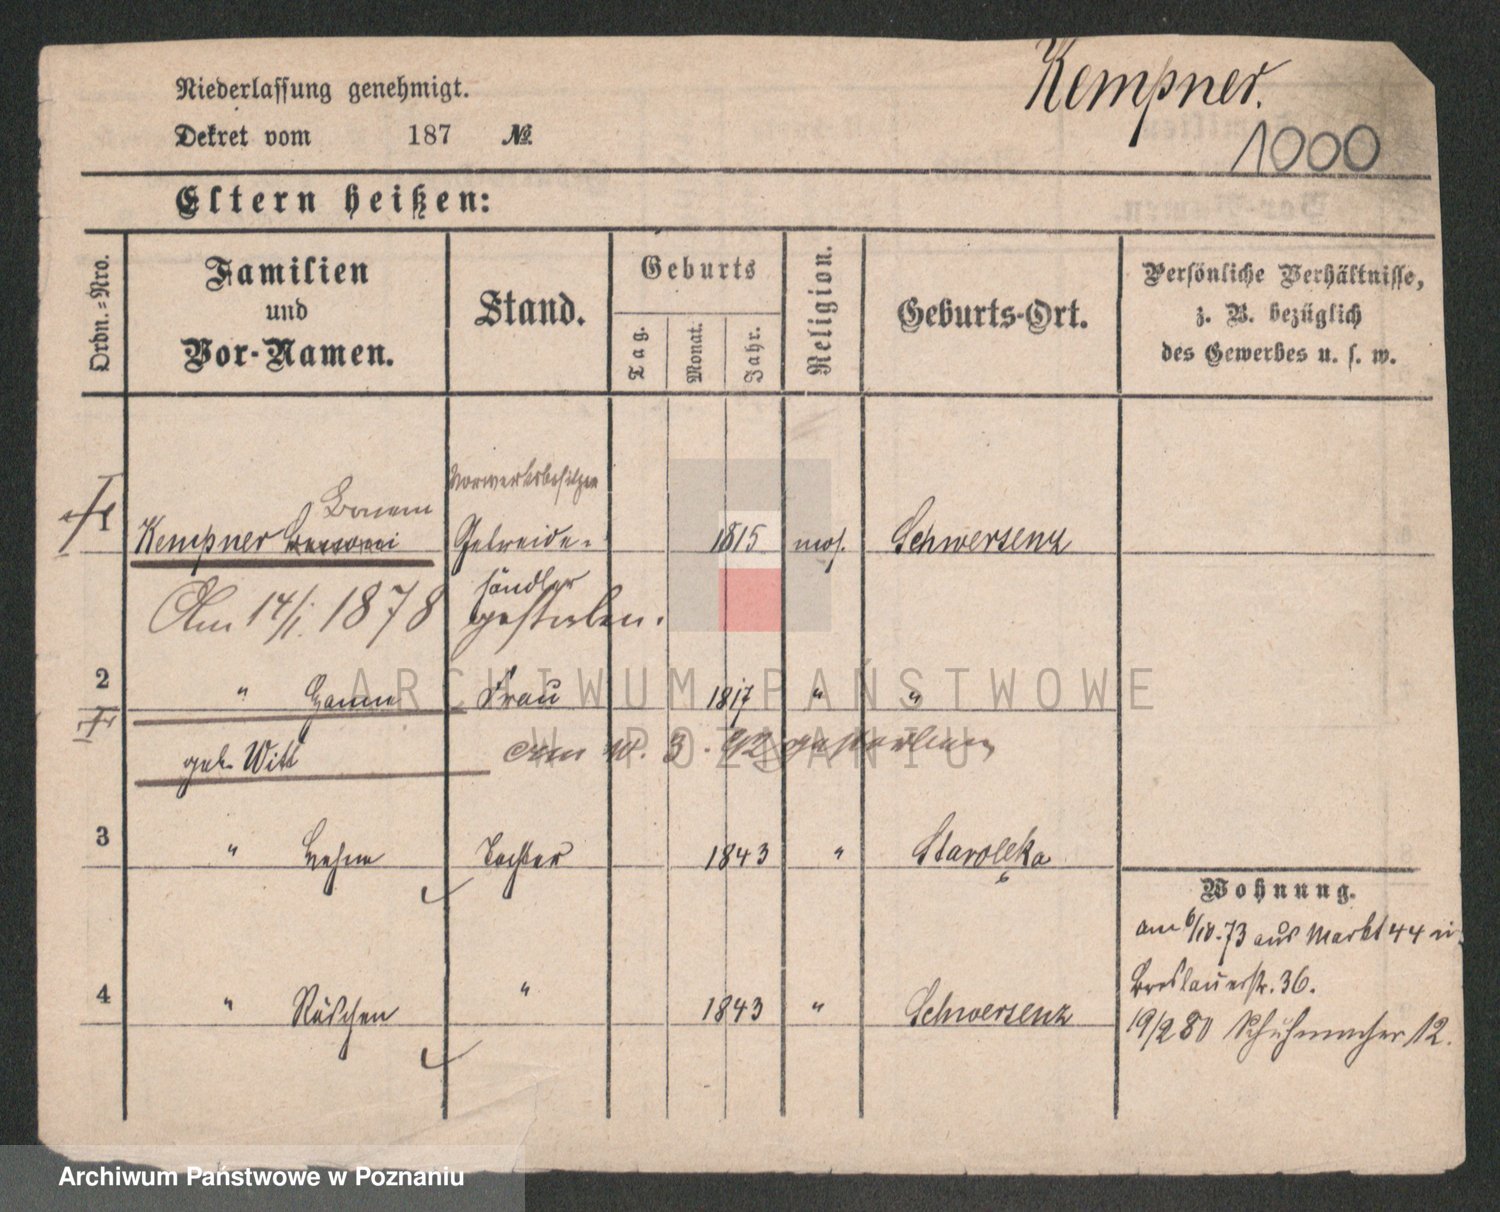 Kempner.
1000
Niederlassung genehmigt.
Dekret vom 187 №
Eltern heißen:
Ordn.-Nro.
Familien und Vor-Namen.
Stand.
Geburts
Tag. Monat. Jahr.
Religion.
Geburts-Ort.
Persönliche Verhältnisse,
z. B. bezüglich
des Gewerbes u. s. w.
Vorwerksbesitzer
1 Kempner Getreide- 1815 mos. Schwersenz
händler
Am 14/1. 1878 gestorben.
2 " Hanne Frau 1817 " "
geb. Witt am 3. 92 gestorben
3 " Tochter 1843 " Starolęka
4 " Röschen " 1843 " Schwersenz
Wohnung.
am 6/10.73 aus Markt 44 n.
Breslauerstr. 36.
19/2 80 Schuhmacher 12.
ARCHIWUM PAŃSTWOWE
W POZNANIU
Archiwum Państwowe w Poznaniu